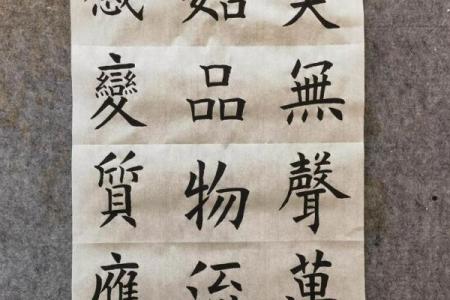 無聲萬
品物流
感變質應